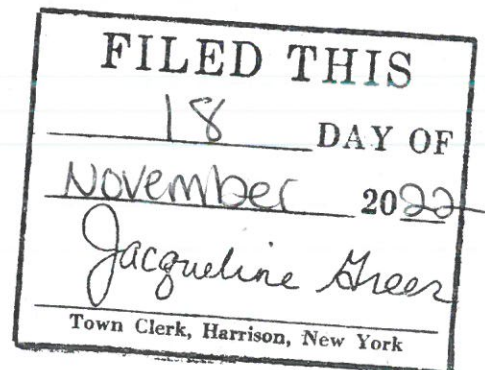 FILED THIS
18 DAY OF
November 2022
Jacqueline Greer
Town Clerk, Harrison, New York